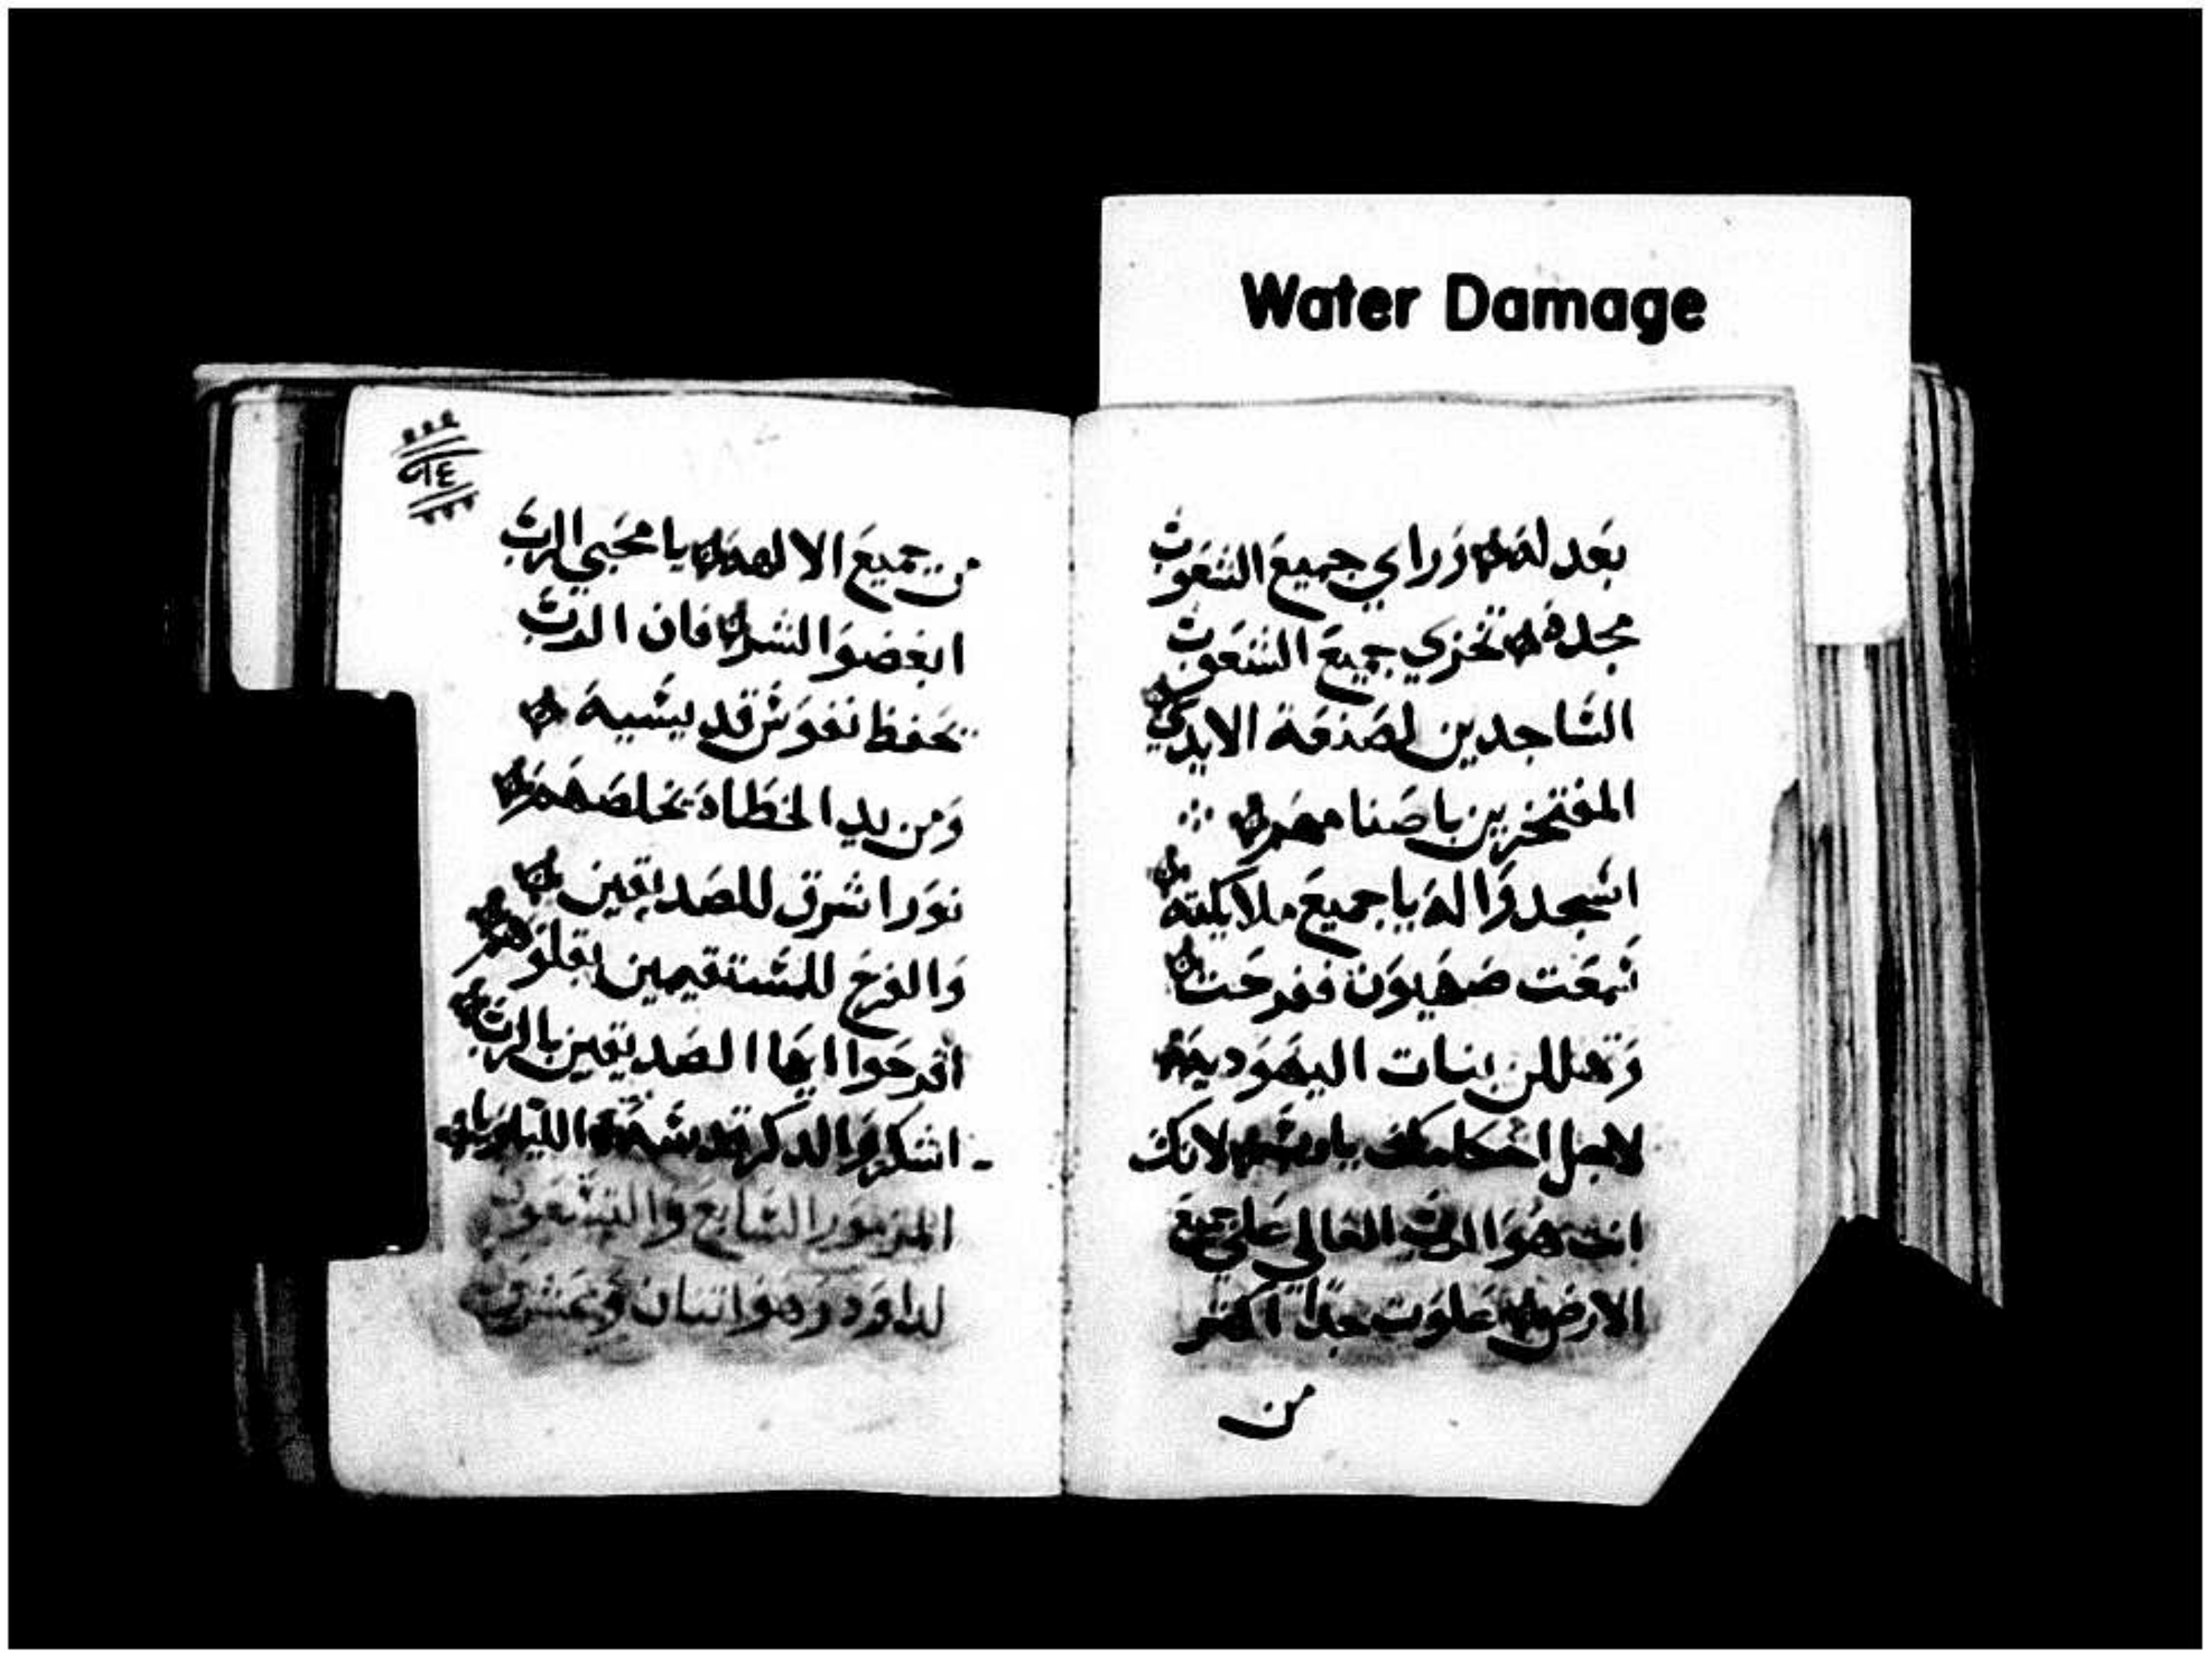 Water Damage
بعدله وراي جميع الشعوب
مجده تخزي جميع الشعوب
الساجدين لصنعة الايدي
المفتخرين باصنامهم
اسجدوا له ياجميع ملايكته
سمعت صهيون ففرحت
وتهللن بنات اليهودية
لاجل احكامك يارب لانك
انت هو الرب العالي علي جميع
الارض علوت جدا اكثر
من
٩٤
من جميع الالهه يا محبي الرب
ابغضوا الشر فان الرب
يحفظ نفوس قديسيه
ومن يد الخطاه يخلصهم
نور اشرق للصديقين
والفرح للمستقيمين بقلوبهم
افرحوا ايها الصديقين بالرب
اشكروا لذكر قدسه الليلويا
المزمور السابع والتسعون
لداود وهو اتنان وعشرون